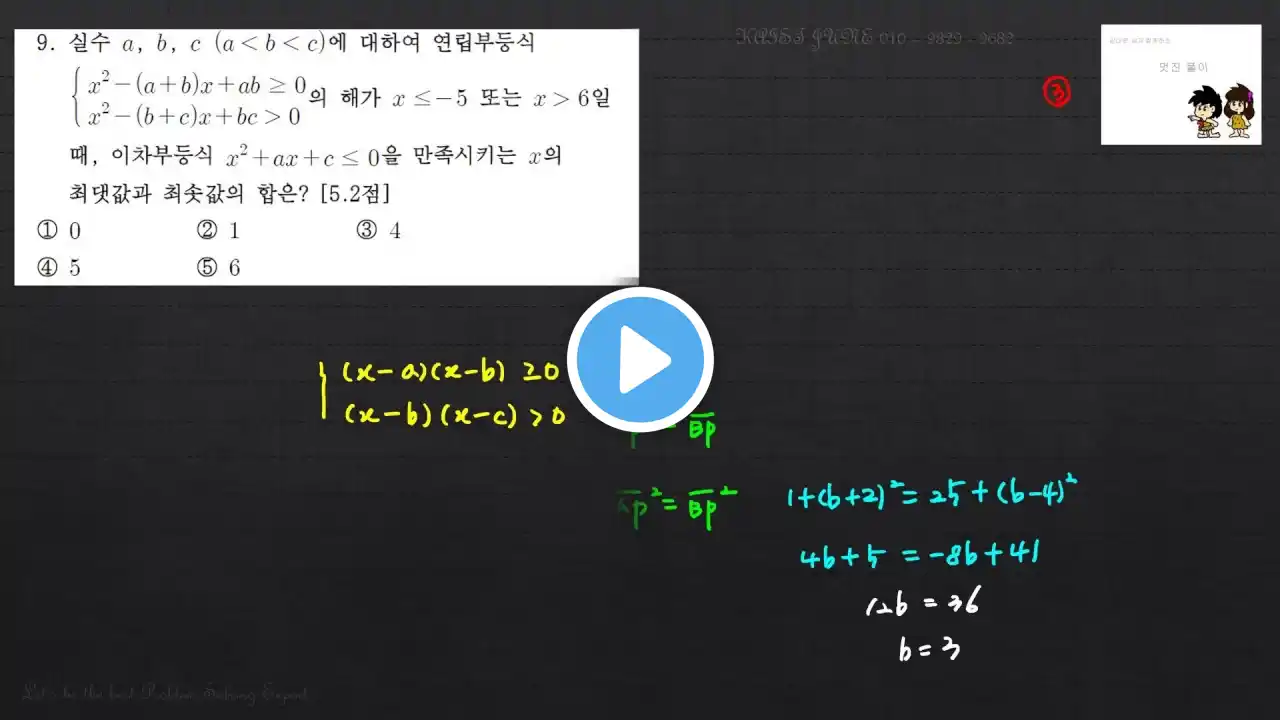 9. 실수 a, b, c (a<b<c)에 대하여 연립부등식
x²-(a+b)x+ab ≥ 0
x²-(b+c)x+bc > 0
의 해가 x ≤ -5 또는 x > 6일
때, 이차부등식 x²+ax+c ≤ 0을 만족시키는 x의
최댓값과 최솟값의 합은? [5.2점]
① 0 ② 1 ③ 4
④ 5 ⑤ 6
③
멋진 풀이
(x-a)(x-b) ≥0
(x-b)(x-c) >0
P = BP
P² = BP²
1+(b+2)²=25+(b-4)²
4b+5 = -8b+41
12b = 36
b = 3
Let's be the best Problem Solving Expert